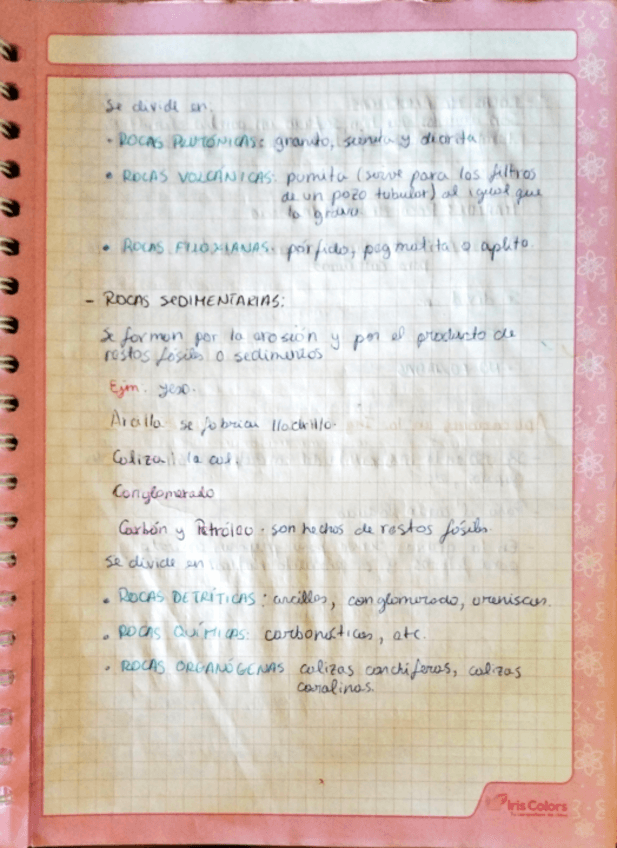 Se divide en:
• ROCAS PLUTÓNICAS: granito, sienita y diorita
• ROCAS VOLCÁNICAS: pumita (sirve para los filtros
de un pozo tubular) al igual que
la grava.
• ROCAS FILONIANAS: pórfido, pegmatita o aplito.
- ROCAS SEDIMENTARIAS:
Se forman por la erosión y por el producto de
restos fósiles o sedimentos
Ejm. yeso.
Arcilla se fabrican lladrillo.
Caliza: la cal.
Conglomerado
Carbón y Petróleo. son hechos de restos fósiles.
Se divide en
• ROCAS DETRÍTICAS: arcillas, conglomerado, areniscas.
• ROCAS QUÍMICAS: carbonáticas, etc.
• ROCAS ORGANÓGENAS calizas conchíferas, calizas
coralinas.
Iris Colors